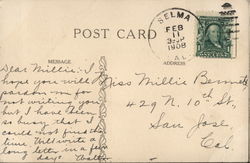 SELMA
FEB
11
1908
POST CARD
MESSAGE.
ADDRESS.
Dear Millie:- I
hope you will
pardon me for
not writing you
but I have been
so busy that I
could not find the
time. Will write a
long letter in a few
days.
Miss Millie Bennett
429 N. 10th St,
San Jose,
Cal.